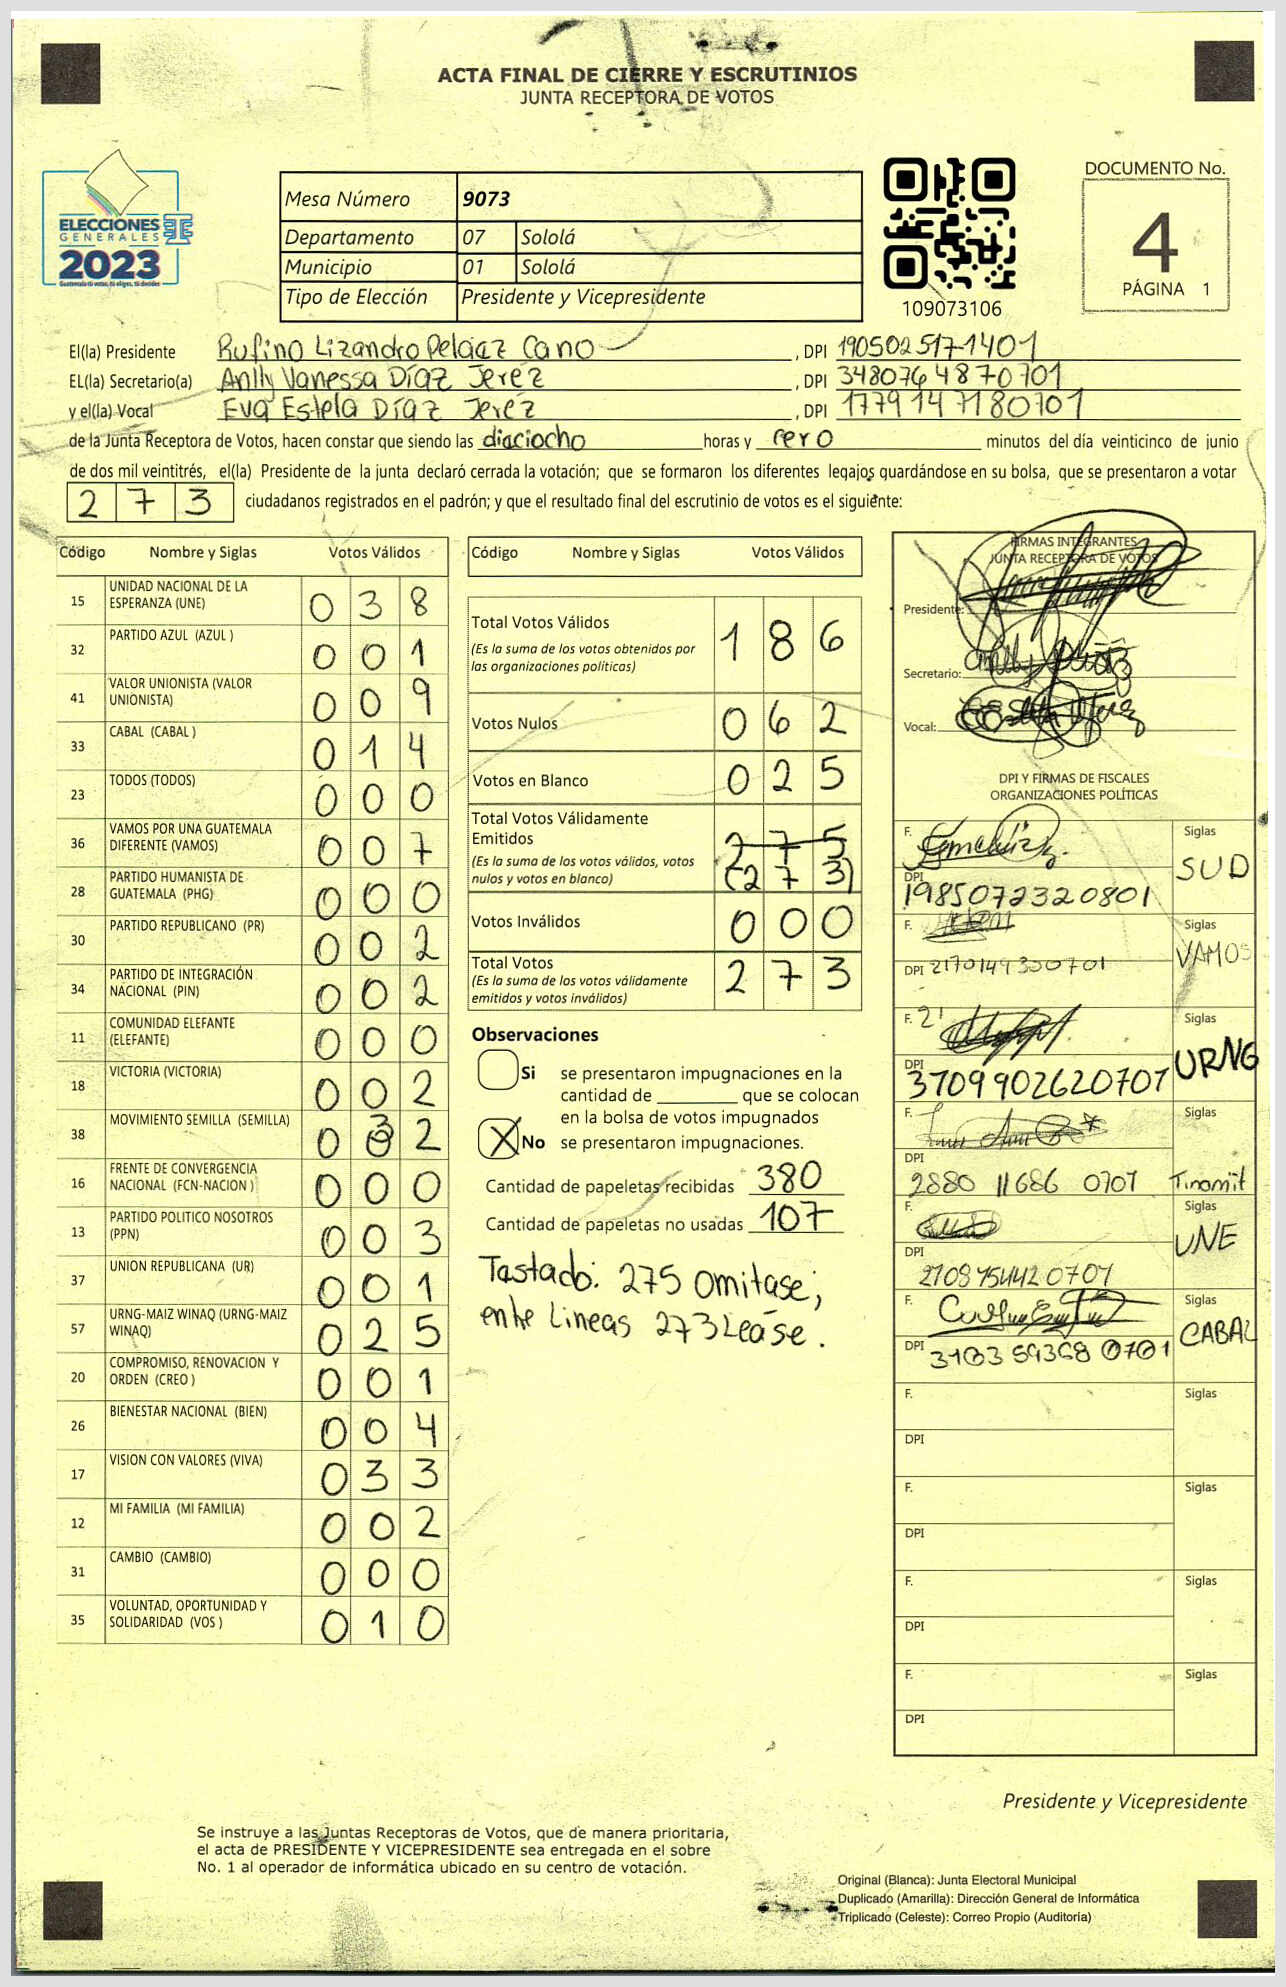 ACTA FINAL DE CIERRE Y ESCRUTINIOS
JUNTA RECEPTORA DE VOTOS
ELECCIONES
GENERALES
2023
Guatemala tú votas, tú eliges, tú decides
Mesa Número 9073
Departamento 07 Sololá
Municipio 01 Sololá
Tipo de Elección Presidente y Vicepresidente
109073106
DOCUMENTO No.
4
PÁGINA 1
El(la) Presidente Rufino Lizandro Peláez Cano, DPI 1905025171401
EL(la) Secretario(a) Anlly Vanessa Díaz Jeréz, DPI 3480764870701
y el(la) Vocal Eva Estela Díaz Jeréz, DPI 1779147180701
de la Junta Receptora de Votos, hacen constar que siendo las diaciocho horas y cero minutos del día veinticinco de junio
de dos mil veintitrés, el(la) Presidente de la junta declaró cerrada la votación; que se formaron los diferentes legajos guardándose en su bolsa, que se presentaron a votar
273 ciudadanos registrados en el padrón; y que el resultado final del escrutinio de votos es el siguiente:
Código Nombre y Siglas Votos Válidos
15 UNIDAD NACIONAL DE LA ESPERANZA (UNE) 038
32 PARTIDO AZUL (AZUL ) 001
41 VALOR UNIONISTA (VALOR UNIONISTA) 009
33 CABAL (CABAL ) 014
23 TODOS (TODOS) 000
36 VAMOS POR UNA GUATEMALA DIFERENTE (VAMOS) 007
28 PARTIDO HUMANISTA DE GUATEMALA (PHG) 000
30 PARTIDO REPUBLICANO (PR) 002
34 PARTIDO DE INTEGRACIÓN NACIONAL (PIN) 002
11 COMUNIDAD ELEFANTE (ELEFANTE) 000
18 VICTORIA (VICTORIA) 002
38 MOVIMIENTO SEMILLA (SEMILLA) 032
16 FRENTE DE CONVERGENCIA NACIONAL (FCN-NACION ) 000
13 PARTIDO POLITICO NOSOTROS (PPN) 003
37 UNION REPUBLICANA (UR) 001
57 URNG-MAIZ WINAQ (URNG-MAIZ WINAQ) 025
20 COMPROMISO, RENOVACION Y ORDEN (CREO ) 001
26 BIENESTAR NACIONAL (BIEN) 004
17 VISION CON VALORES (VIVA) 033
12 MI FAMILIA (MI FAMILIA) 002
31 CAMBIO (CAMBIO) 000
35 VOLUNTAD, OPORTUNIDAD Y SOLIDARIDAD (VOS ) 010
Código Nombre y Siglas Votos Válidos
Total Votos Válidos 186
(Es la suma de los votos obtenidos por
las organizaciones políticas)
Votos Nulos 062
Votos en Blanco 025
Total Votos Válidamente
Emitidos 275
(Es la suma de los votos válidos, votos
nulos y votos en blanco) (273)
Votos Inválidos 000
Total Votos 273
(Es la suma de los votos válidamente
emitidos y votos inválidos)
Observaciones
Si se presentaron impugnaciones en la
cantidad de ________ que se colocan
en la bolsa de votos impugnados
X No se presentaron impugnaciones.
Cantidad de papeletas recibidas 380
Cantidad de papeletas no usadas 107
Tastado: 275 omitase;
entre Lineas 273 Lease.
FIRMAS INTEGRANTES
JUNTA RECEPTORA DE VOTOS
Presidente:
Secretario:
Vocal:
DPI Y FIRMAS DE FISCALES
ORGANIZACIONES POLÍTICAS
F. Siglas SUD
DPI 1985072320801
F. Siglas VAMOS
DPI 2170149300701
F. Siglas URNG
DPI 3709902620707
F. Siglas Tinamit
DPI 2880 11686 0707
F. Siglas UNE
DPI
F. Siglas CABAL
DPI 3103 59368 0701
F. Siglas
DPI
F. Siglas
DPI
F. Siglas
DPI
F. Siglas
DPI
Presidente y Vicepresidente
Se instruye a las Juntas Receptoras de Votos, que de manera prioritaria,
el acta de PRESIDENTE Y VICEPRESIDENTE sea entregada en el sobre
No. 1 al operador de informática ubicado en su centro de votación.
Original (Blanca): Junta Electoral Municipal
Duplicado (Amarilla): Dirección General de Informática
Triplicado (Celeste): Correo Propio (Auditoría)